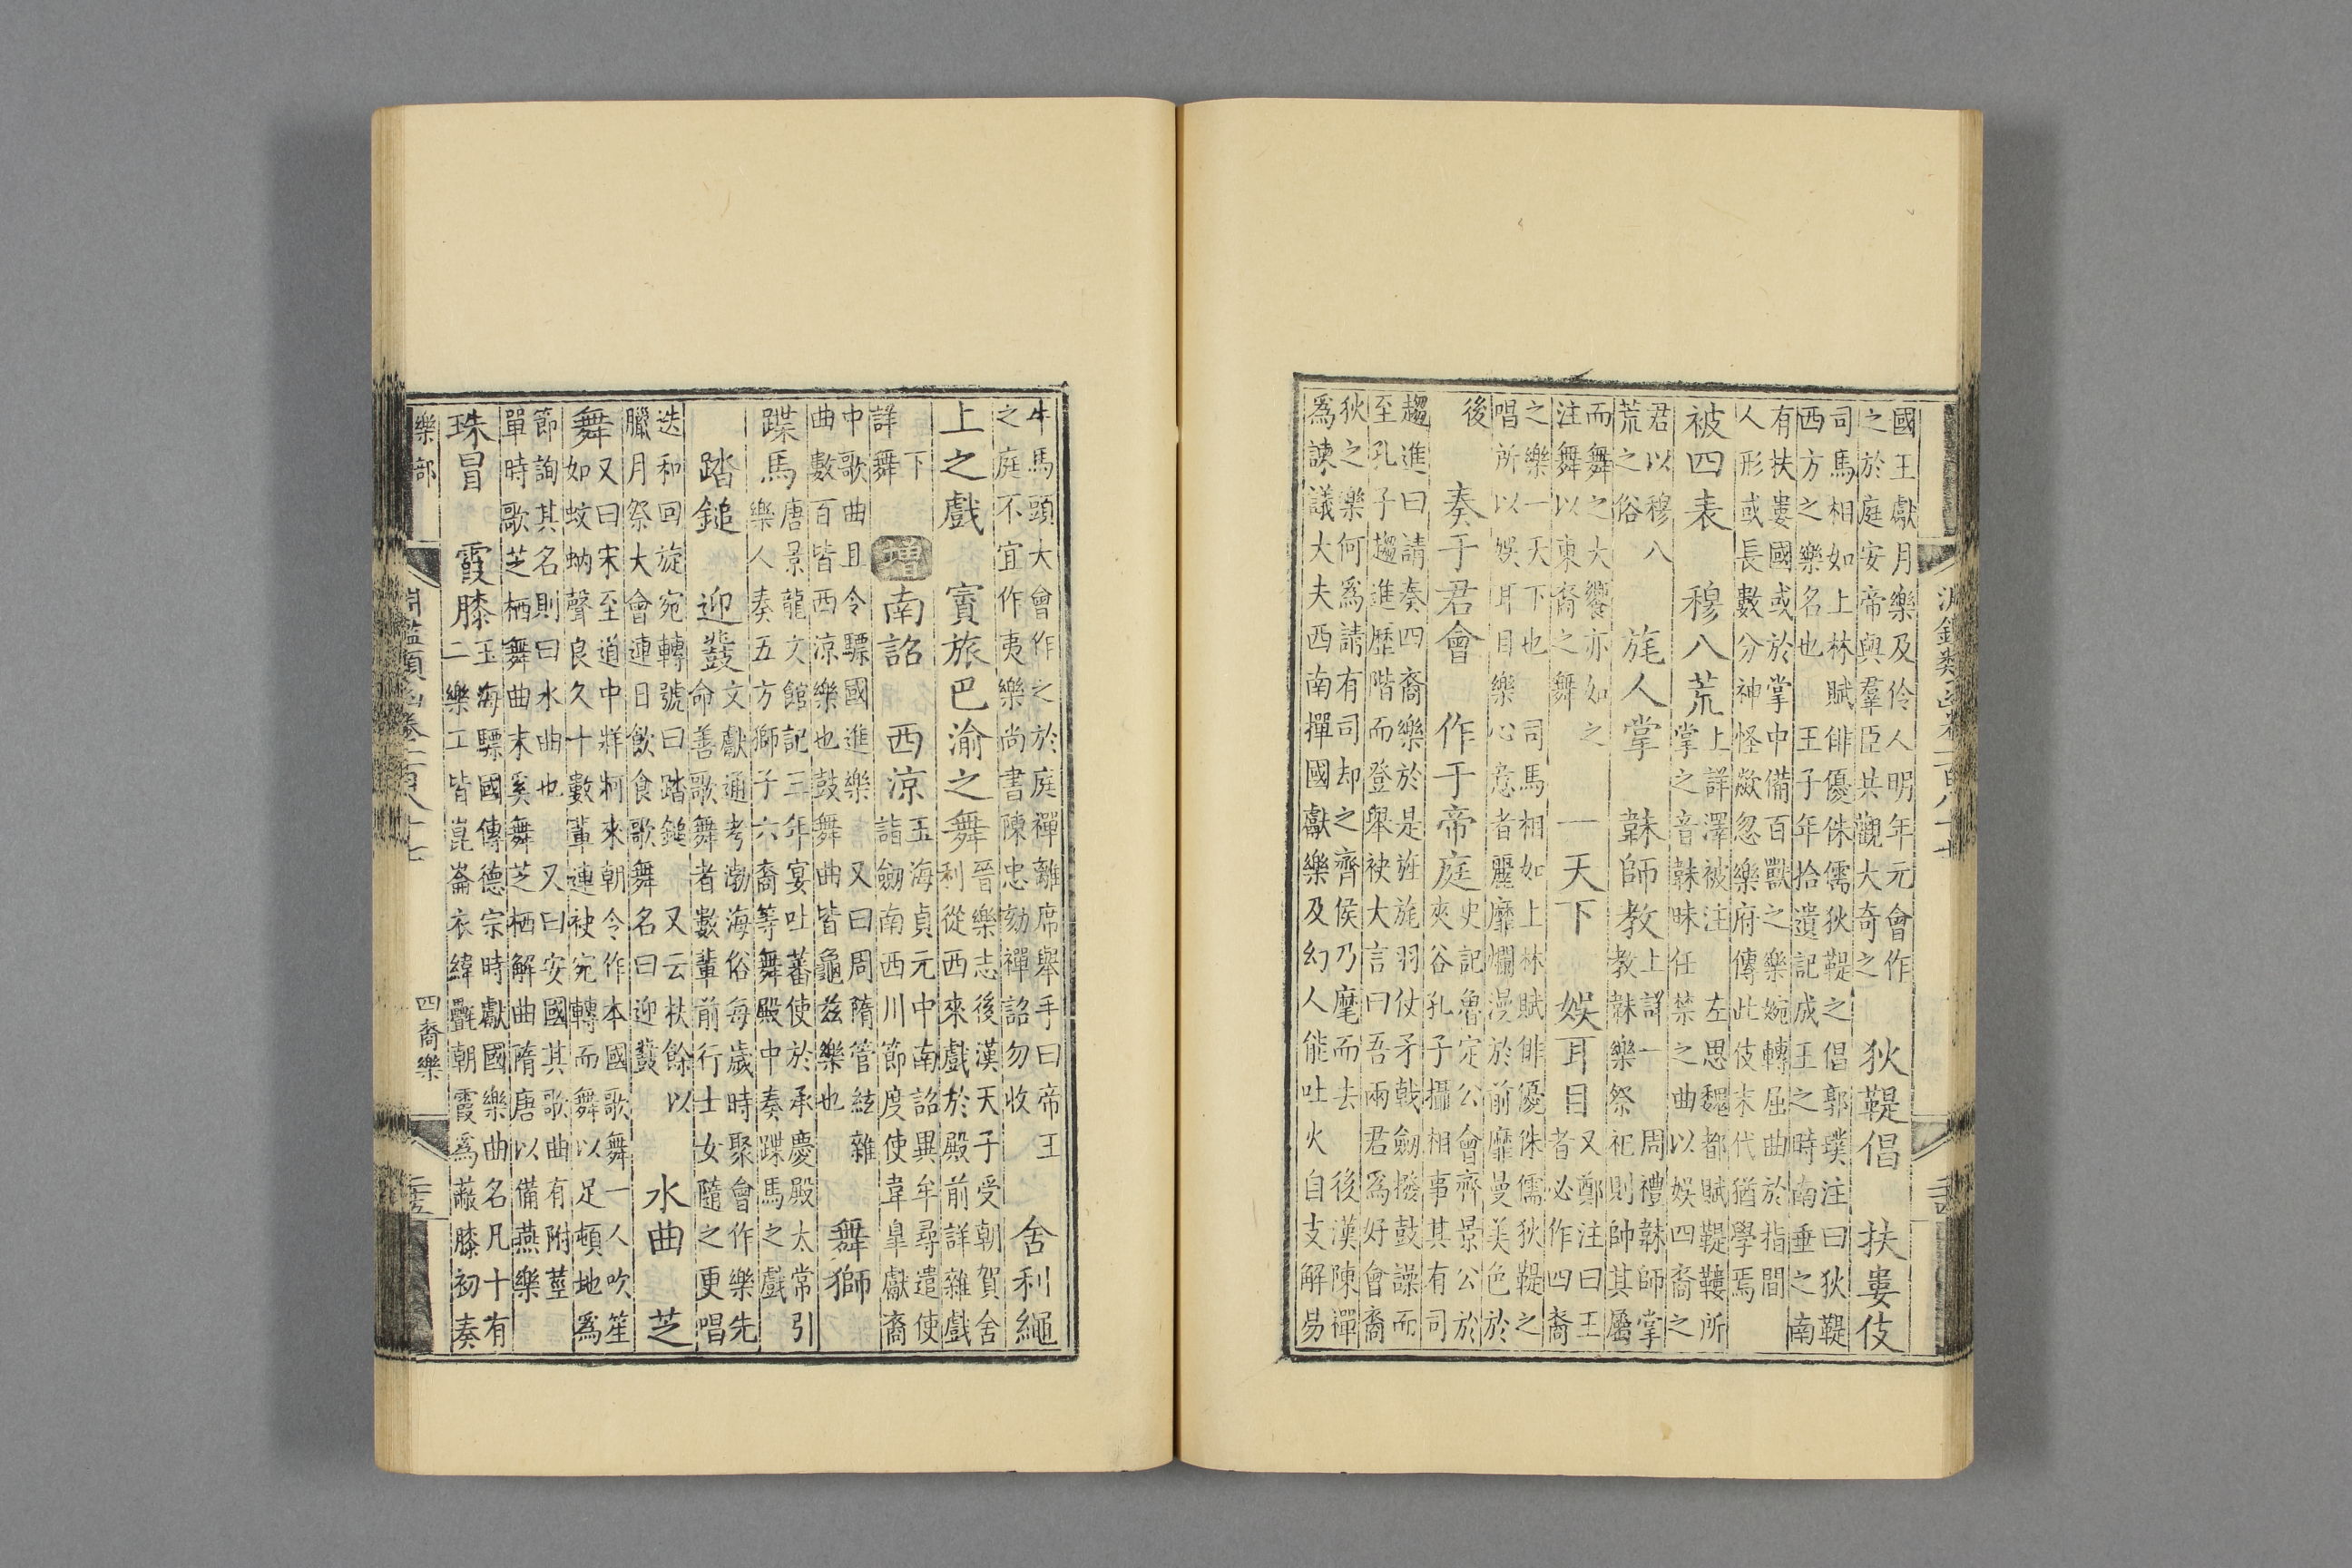 淵鑑類函卷一百八十七
國王獻月樂及伶人明年元會作
之於庭安帝與羣臣共觀大奇之
狄鞮倡 扶婁伎
司馬相如上林賦俳優侏儒狄鞮之倡郭璞注曰狄鞮
西方之樂名也 王子年拾遺記成王之時南垂之南
有扶婁國或於掌中備百獸之樂婉轉屈曲於指間
人形或長數分神怪歘忽樂府傳此伎末代猶學焉
被四表 穆八荒
上詳澤被注 左思魏都賦鞮鞻所
掌之音韎昧任禁之曲以娛四裔之
君以穆八
荒之俗
旄人掌 韎師教
上詳一 周禮韎師掌
教韎樂祭祀則帥其屬
而舞之大饗亦如之
注舞以東裔之舞
一天下 娛耳目
又鄭注曰王
者必作四裔
之樂一天下也 司馬相如上林賦俳優侏儒狄鞮之
唱所以娛耳目樂心意者麗靡爛漫於前靡曼美色於
後
奏于君會 作于帝庭
史記魯定公會齊景公於
夾谷孔子攝相事其有司
趨進曰請奏四裔樂於是旌旄羽仗矛戟劒撥鼓譟而
至孔子趨進歷階而登舉袂大言曰吾兩君爲好會裔
狄之樂何爲請有司却之齊侯乃麾而去 後漢陳禪
爲諫議大夫西南撣國獻樂及幻人能吐火自支解易
牛馬頭大會作之於庭禪離席舉手曰帝王
之庭不宜作夷樂尚書陳忠劾禪詔勿收
舍利繩
上之戲 賨旅巴渝之舞
晉樂志後漢天子受朝賀舍
利從西來戲於殿前詳雜戲
下
詳舞
增
南詔 西涼
玉海貞元中南詔異牟尋遣使
詣劒南西川節度使韋臯獻裔
中歌曲且令驃國進樂 又曰周隋管絃雜
曲數百皆西涼樂也鼓舞曲皆龜兹樂也
舞獅
蹀馬
唐景龍文館記三年宴吐蕃使於承慶殿太常引
樂人奏五方獅子六裔等舞殿中奏蹀馬之戲
踏鎚 迎鼗
文獻通考渤海俗每歲時聚會作樂先
命善歌舞者數輩前行士女隨之更唱
迭和回旋宛轉號曰踏鎚 又云扶餘以
臘月祭天會連日飲食歌舞名曰迎鼗
水曲 芝
舞
又曰宋至道中牂牁來朝令作本國歌舞一人吹笙
如蚊蚋聲良久十數輩連袂宛轉而舞以足頓地爲
節詢其名則曰水曲也 又曰安國其歌曲有附莖
單時歌芝栖舞曲末奚舞芝栖解曲隋唐以備燕樂
珠冒 霞膝
玉海驃國傳德宗時獻國樂曲名凡十有
二樂工皆崑崙衣緯氎朝霞爲蔽膝初奏
樂部 淵鑑類函卷一百八十七 四裔樂